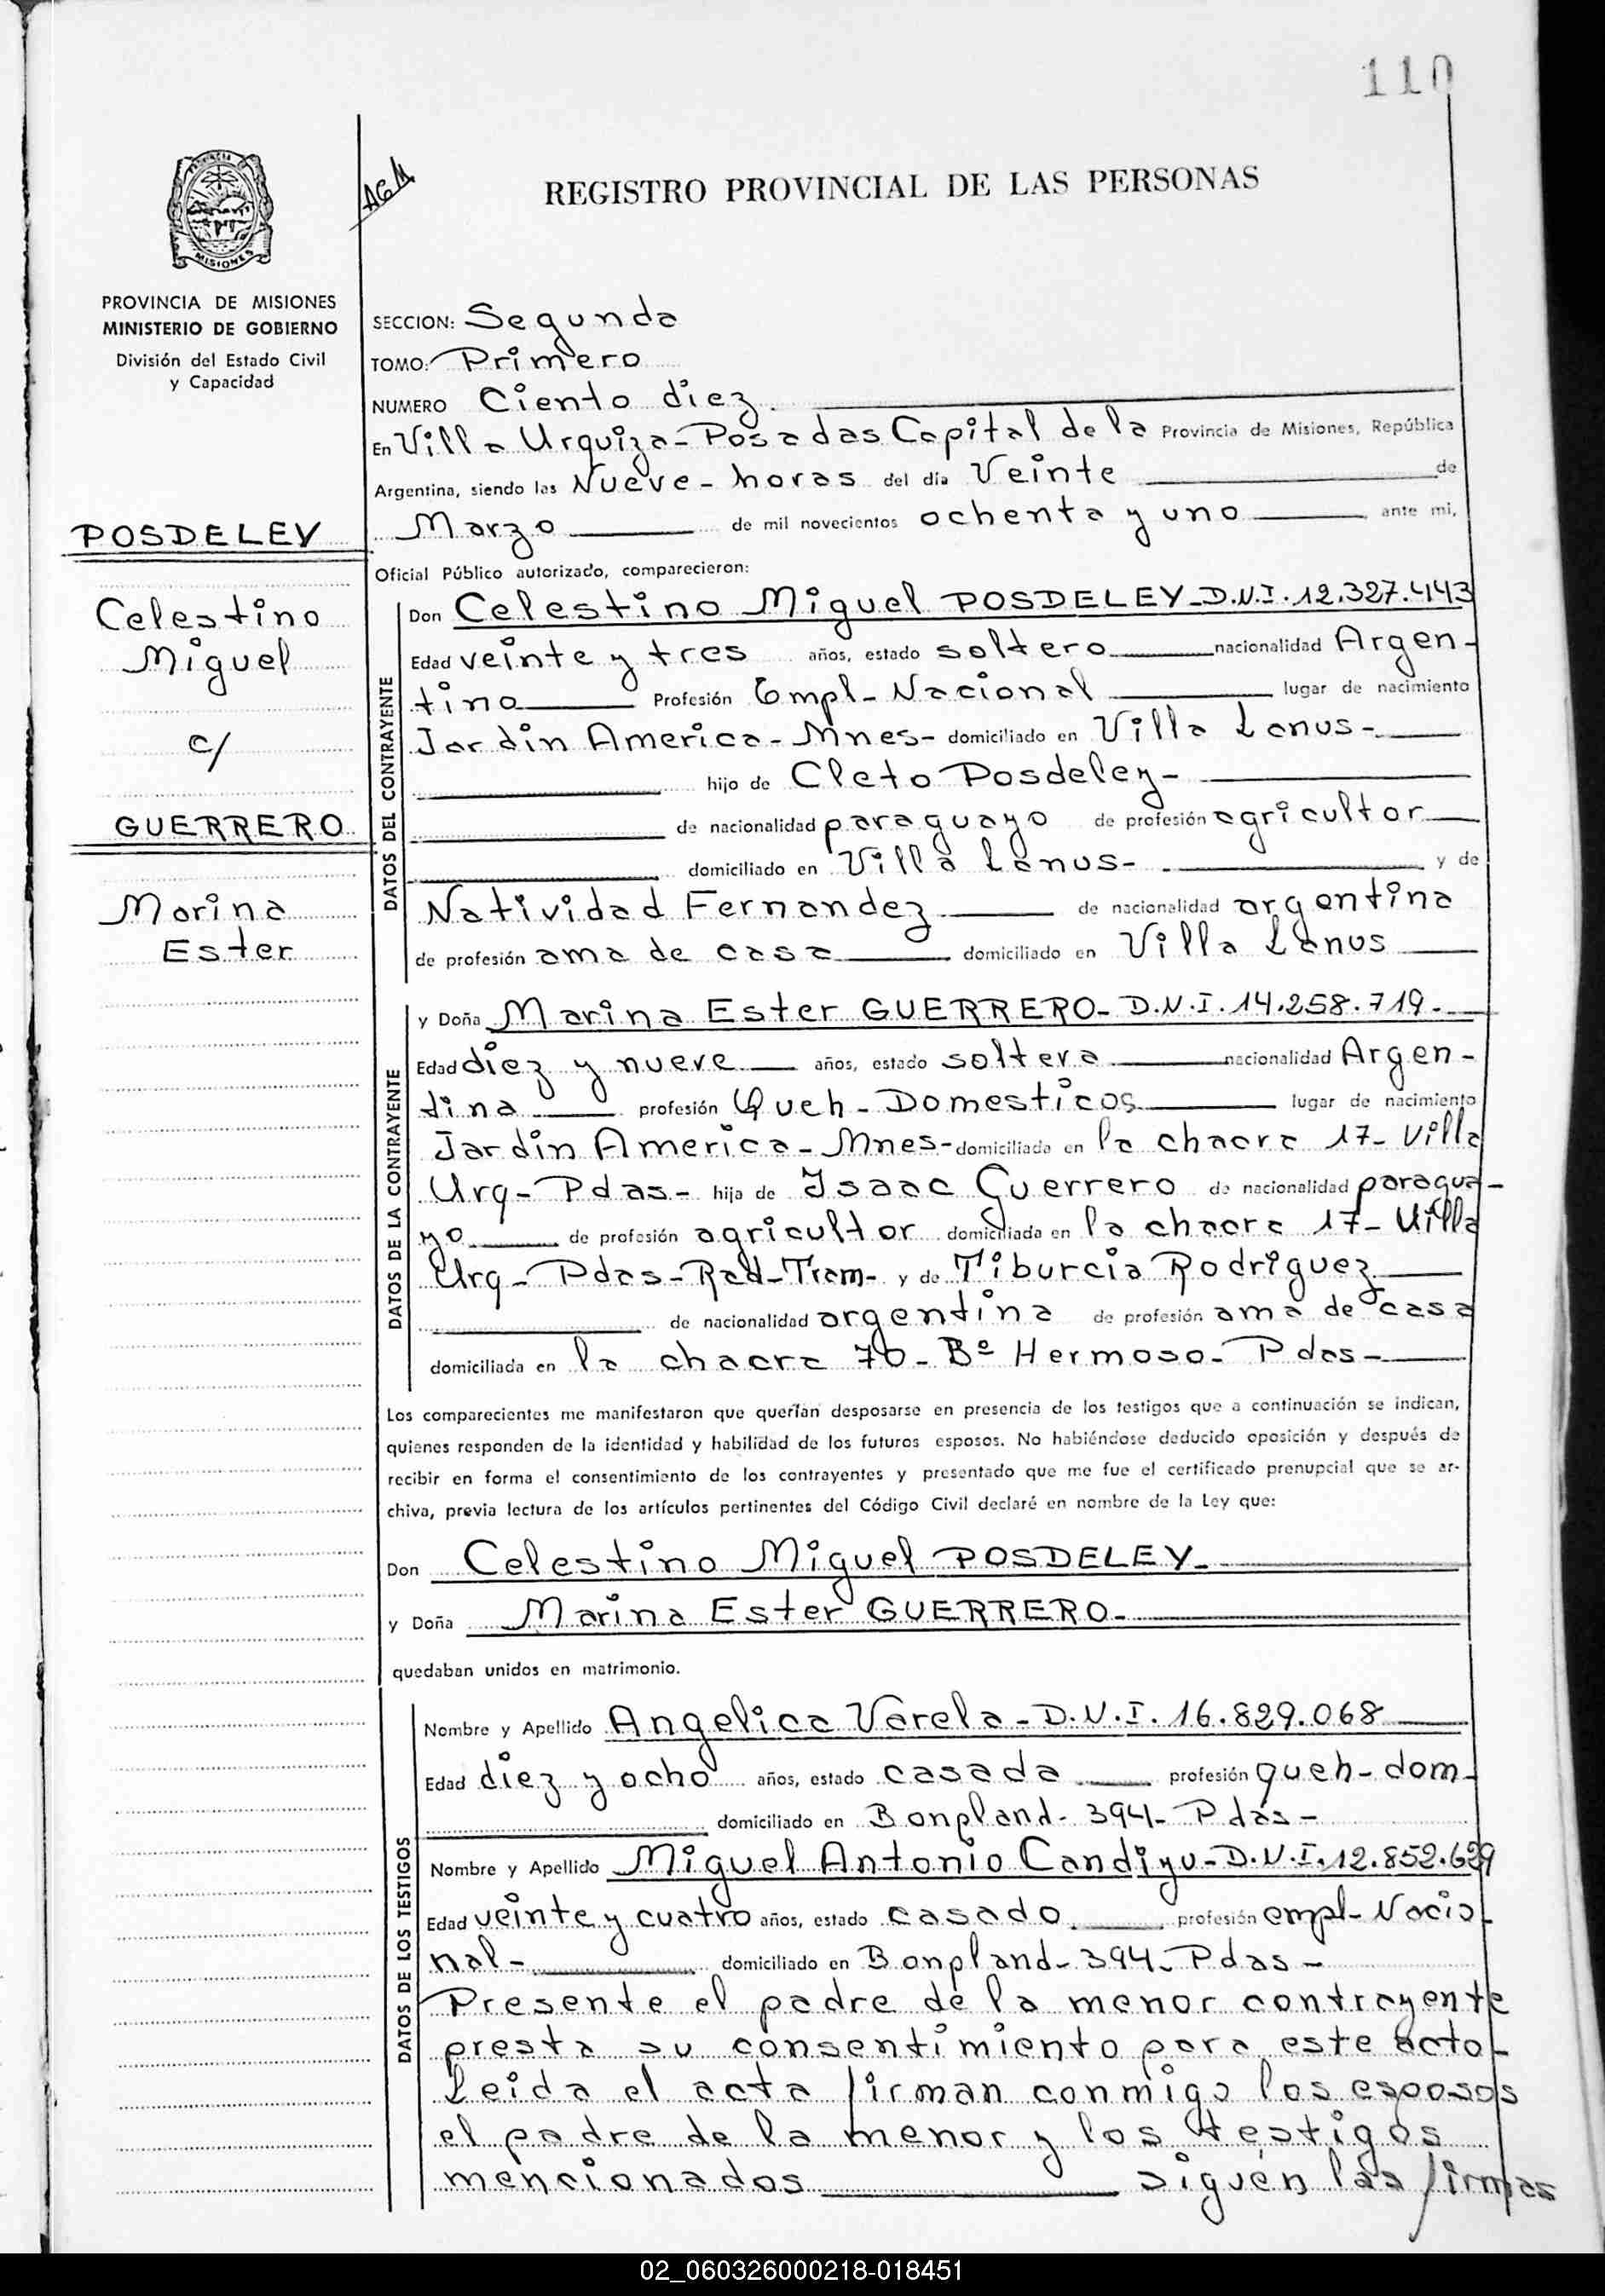 110
PROVINCIA DE
MISIONES
PROVINCIA DE MISIONES
MINISTERIO DE GOBIERNO
División del Estado Civil
y Capacidad
POSDELEY
Celestino
Miguel
c/
GUERRERO
Marina
Ester
REGISTRO PROVINCIAL DE LAS PERSONAS
SECCION: Segunda
TOMO: Primero
NUMERO Ciento diez.
En Villa Urquiza - Posadas Capital de la Provincia de Misiones, República
Argentina, siendo las Nueve - horas del día Veinte de
Marzo de mil novecientos ochenta y uno ante mi,
Oficial Público autorizado, comparecieron:
DATOS DEL CONTRAYENTE
Don Celestino Miguel POSDELEY - D.N.I. 12.327.443
Edad veinte y tres años, estado soltero nacionalidad Argen-
tino Profesión Empl - Nacional lugar de nacimiento
Jardin America - Mnes - domiciliado en Villa Lanus -
hijo de Cleto Posdeley -
de nacionalidad paraguayo de profesión agricultor
domiciliado en Villa Lanus - y de
Natividad Fernandez de nacionalidad argentina
de profesión ama de casa domiciliado en Villa Lanus
DATOS DE LA CONTRAYENTE
y Doña Marina Ester GUERRERO - D.N.I. 14.258.719 -
Edad diez y nueve años, estado soltera nacionalidad Argen -
tina profesión Queh - Domesticos lugar de nacimiento
Jardin America - Mnes - domiciliada en la chacra 17 - Villa
Urq - Pdas - hija de Isaac Guerrero de nacionalidad paragua -
yo de profesión agricultor domiciliada en la chacra 17 - Villa
Urq - Pdas - Rad - Tram - y de Tiburcia Rodriguez
de nacionalidad argentina de profesión ama de casa
domiciliada en la chacra 70 - Bº Hermoso - Pdas -
Los comparecientes me manifestaron que querían desposarse en presencia de los testigos que a continuación se indican,
quienes responden de la identidad y habilidad de los futuros esposos. No habiéndose deducido oposición y después de
recibir en forma el consentimiento de los contrayentes y presentado que me fue el certificado prenupcial que se ar-
chiva, previa lectura de los artículos pertinentes del Código Civil declaré en nombre de la Ley que:
Don Celestino Miguel POSDELEY -
y Doña Marina Ester GUERRERO -
quedaban unidos en matrimonio.
DATOS DE LOS TESTIGOS
Nombre y Apellido Angelica Varela - D.N.I. 16.829.068
Edad diez y ocho años, estado casada profesión queh - dom -
domiciliado en Bonpland - 394 - Pdas -
Nombre y Apellido Miguel Antonio Candiyu - D.N.I. 12.852.629
Edad veinte y cuatro años, estado casado profesión empl - Nacio
nal - domiciliado en Bonpland - 394 - Pdas -
Presente el padre de la menor contrayente
presta su consentimiento para este acto -
Leida el acta firman conmigo los esposos
el padre de la menor y los testigos
mencionados siguen las firmas
02_060326000218-018451